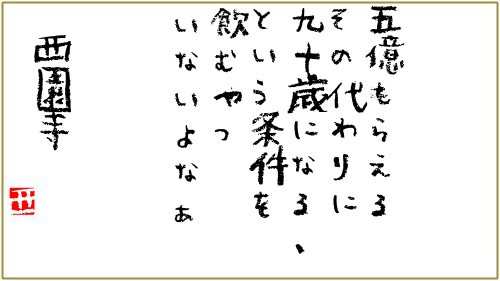 五億もらえる
その代わりに
九十歳になる、
という条件を
飲むやつ
いないよなぁ
西園寺